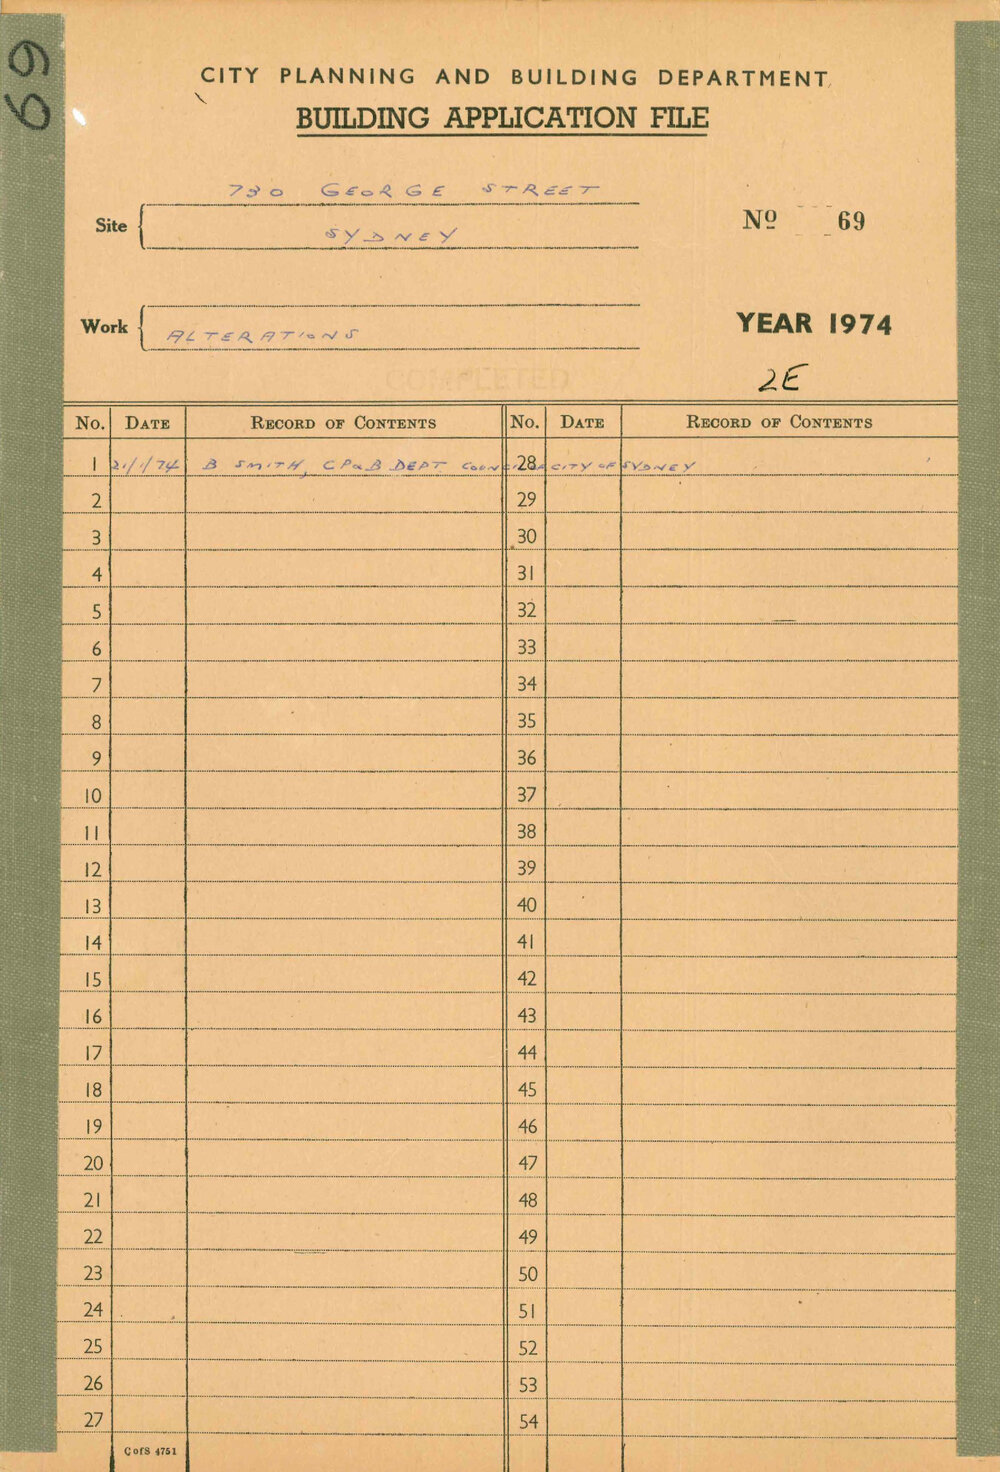 69
CITY PLANNING AND BUILDING DEPARTMENT
BUILDING APPLICATION FILE
730 GEORGE STREET
Site
SYDNEY
Nº 69
Work
ALTERATIONS
YEAR 1974
COMPLETED
2E
No. DATE RECORD OF CONTENTS No. DATE RECORD OF CONTENTS
1 21/1/74 B SMITH, CP&B DEPT COUNCIL OF CITY OF SYDNEY 28
2 29
3 30
4 31
5 32
6 33
7 34
8 35
9 36
10 37
11 38
12 39
13 40
14 41
15 42
16 43
17 44
18 45
19 46
20 47
21 48
22 49
23 50
24 51
25 52
26 53
27 54
C of S 4751